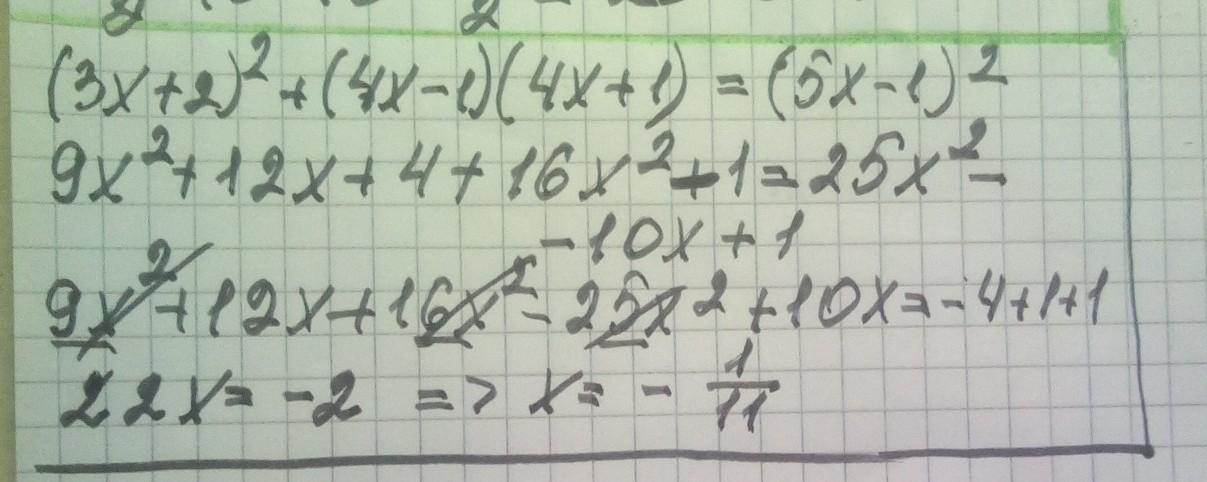 (3x+2)² + (4x-1)(4x+1) = (5x-1)²
9x² + 12x + 4 + 16x² - 1 = 25x² -
- 10x + 1
9x² + 12x + 16x² - 25x² + 10x = -4+1+1
22x = -2 => x = - 1/11